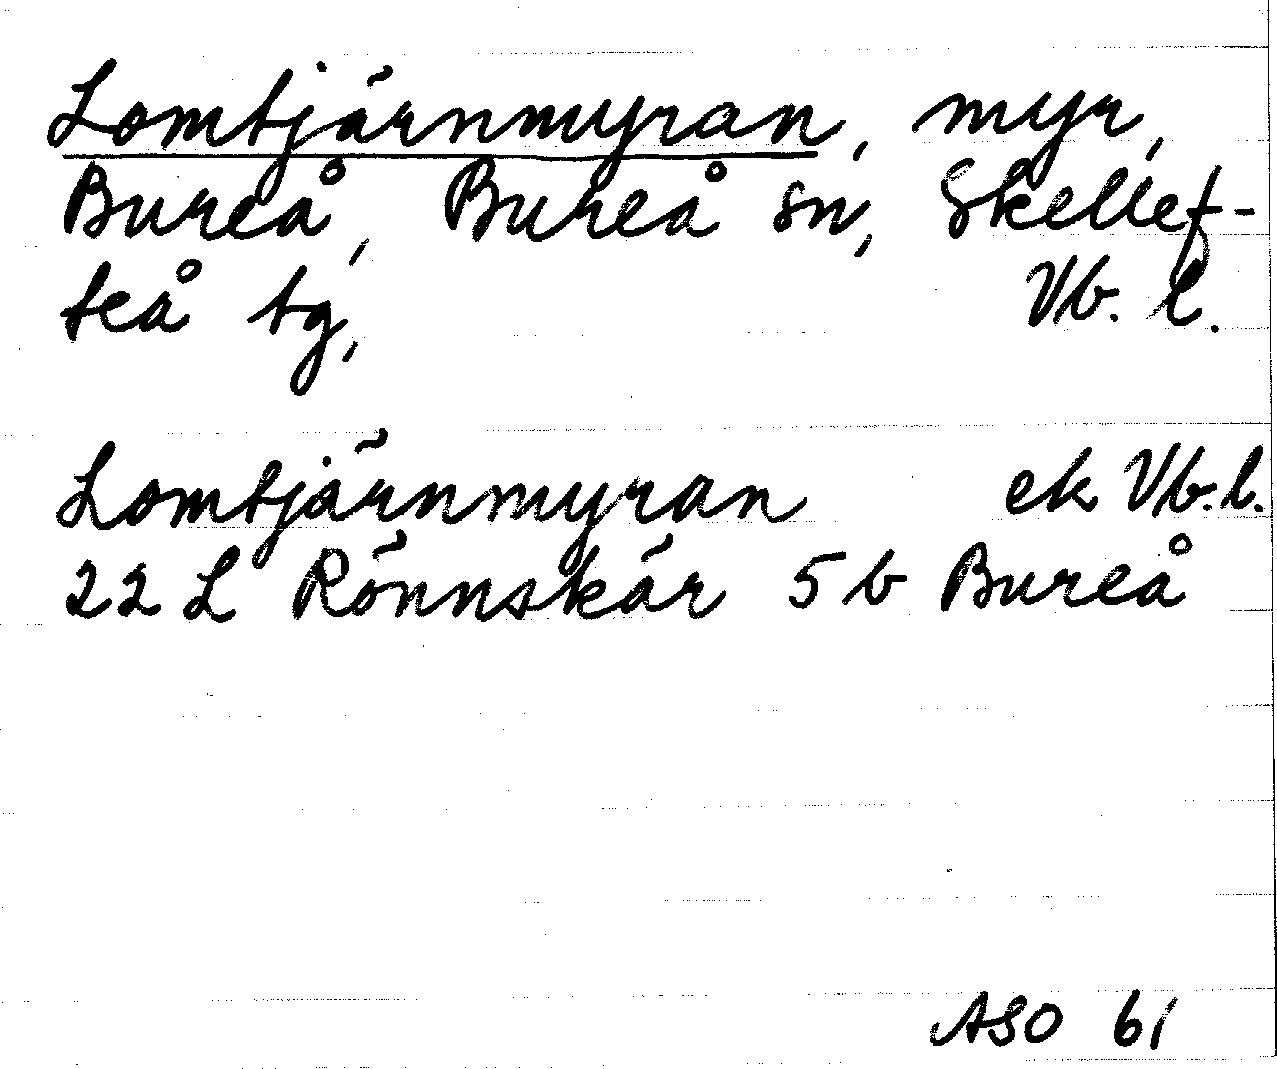 Lomtjärnmyran, myr,
Bureå, Bureå sn, Skellef-
teå tg, Vb. l.
Lomtjärnmyran ek Vb. l.
22 L Rönnskär 5 b Bureå
ASO 61